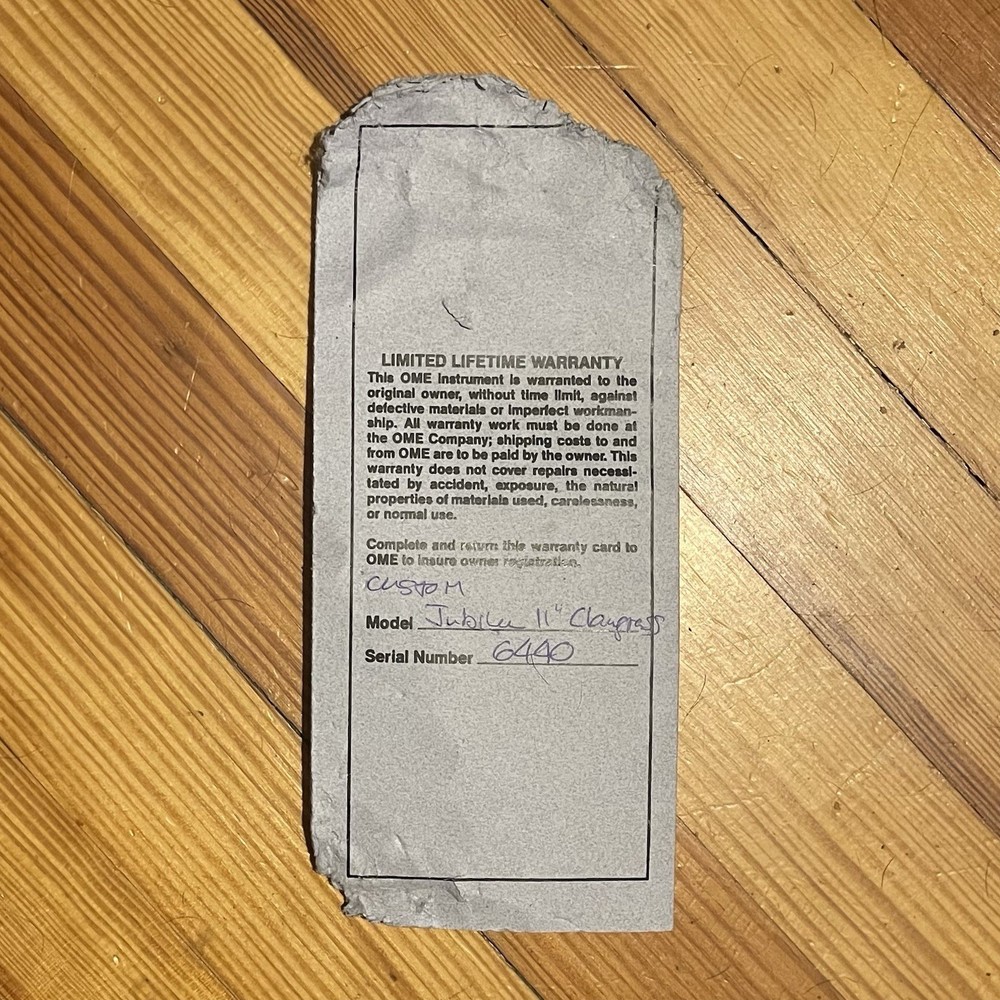 LIMITED LIFETIME WARRANTY
This OME Instrument is warranted to the
original owner, without time limit, against
defective materials or imperfect workman-
ship. All warranty work must be done at
the OME Company; shipping costs to and
from OME are to be paid by the owner. This
warranty does not cover repairs necessi-
tated by accident, exposure, the natural
properties of materials used, carelessness,
or normal use.
Complete and return this warranty card to
OME to insure owner registration.
CUSTOM
Model Jubilee 11" Clawgrass
Serial Number 6440